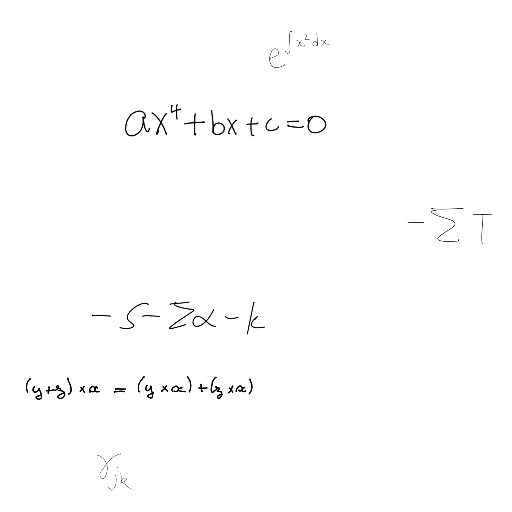 e^{∫x^2dx}
ax^4+bx+c=0
-∑T
-S-∑α-k
(y+z)×x = (y×x)+(z×x)
γ_{jk}